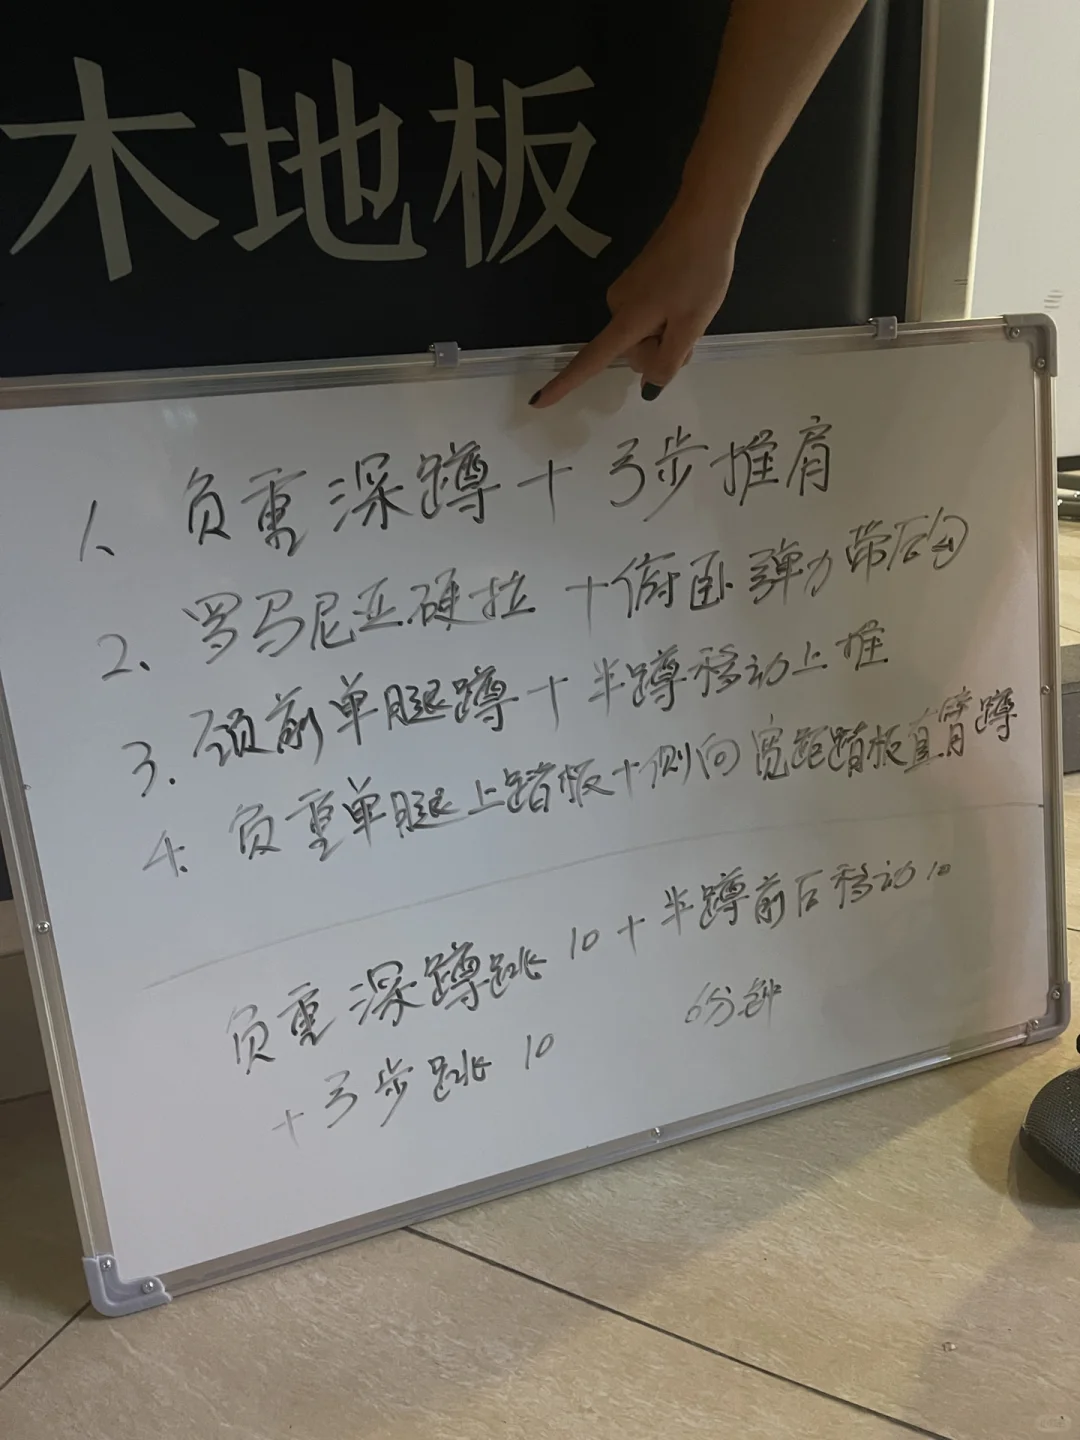 木地板
1、负重深蹲+弓步推肩
2、罗马尼亚硬拉+俯卧弹力带后勾
3.颈前单腿蹲+半蹲移动上推
4.负重单腿上踏板+侧向宽距踏板直臂蹲
负重深蹲跳10+半蹲前后移动10
+弓步跳10 6分钟